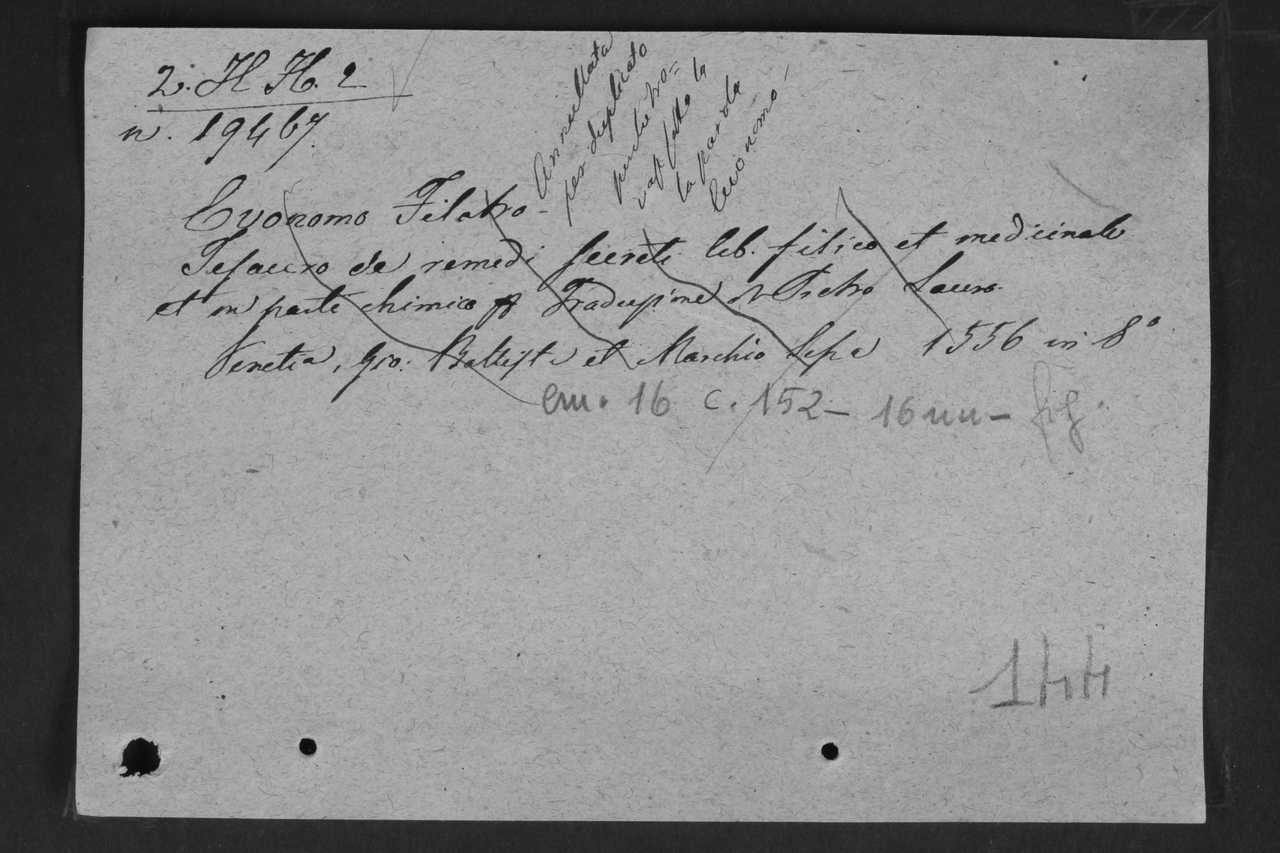 2. H H. 2
n. 19467.
Annullata
per duplicato
perchè tro-
vasi fatta la
la parola
Evonomo
Evonomo Filatro -
Tesauro de remedi secreti lib. fisico et medicinale
et in parte chimico Traduzione di Pietro Lauro.
Venetia, Gio. Battista et Marchio Sessa 1556 in 8°
em. 16 c. 152 - 16 nn - fig.
144